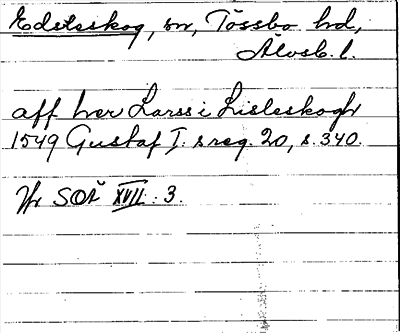 Edsleskog, sn, Tössbo hd,
Älvsb. l.
aff her Larss i Lisleskogh
1549 Gustaf I:s reg. 20, s. 340.
Jfr SOÄ XVII: 3.